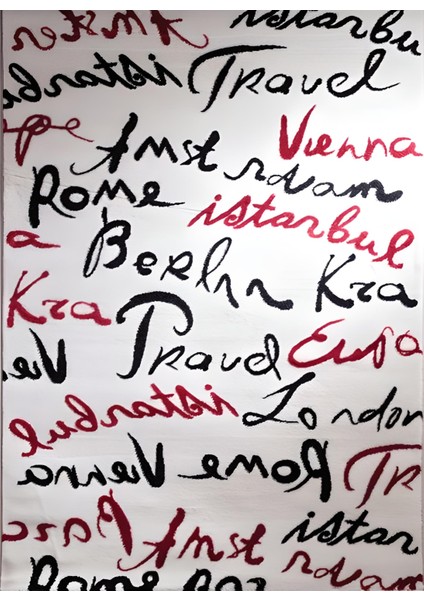 Amster istanbu
istanbul Travel
ope Amst rdam Vienna
Rome istanbul
a Berlin Kra
Kra Travel Euro
Vie
istanbul London
Vienna Rome Tr
Amst rdam istan
Rome